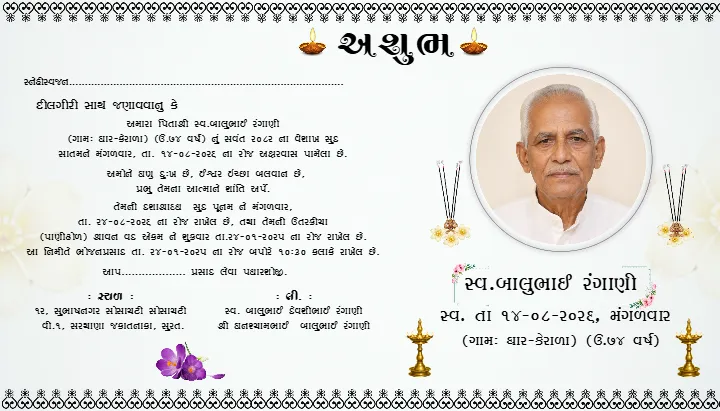 અશુભ
સ્નેહીસ્વજન................................................................................
દીલગીરી સાથ જણાવવાનુ કે
અમારા પિતાશ્રી સ્વ.બાલુભાઈ રંગાણી
(ગામઃ ધાર-કેરાળા) (ઉ.૭૪ વર્ષ) નું સવંત ૨૦૮૨ ના વૈશાખ સુદ
સાતમને મંગળવાર, તા. ૧૪-૦૮-૨૦૨૬ ના રોજ અક્ષરવાસ પામેલા છે.
અમોને ઘણુ દુઃખ છે, ઈશ્વર ઈચ્છા બલવાન છે,
પ્રભુ તેમના આત્માને શાંતિ અર્પે.
તેમની દશાશ્રાધ્ધ સુદ પૂનમ ને મંગળવાર,
તા. ૨૪-૦૮-૨૦૨૬ ના રોજ રાખેલ છે, તથા તેમની ઉતરક્રીયા
(પાણીઢોળ) શ્રાવન વદ એકમ ને શુક્રવાર તા.૨૪-૦૧-૨૦૨૫ ના રોજ રાખેલ છે.
આ નિમીતે ભોજનપ્રસાદ તા. ૨૪-૦૧-૨૦૨૫ ના રોજ બપોરે ૧૦:૩૦ કલાકે રાખેલ છે.
આપ.................. પ્રસાદ લેવા પધારશોજી.
: સ્થળ :
૧૨, સુભાષનગર સોસાયટી સોસાયટી
વી.૧, સરથાણા જકાતનાકા, સુરત.
: લી. :
સ્વ. બાલુભાઈ દેવશીભાઈ રંગાણી
શ્રી ઘનશ્યામભાઈ બાલુભાઈ રંગાણી
સ્વ.બાલુભાઈ રંગાણી
સ્વ. તા ૧૪-૦૮-૨૦૨૬, મંગળવાર
(ગામઃ ધાર-કેરાળા) (ઉ.૭૪ વર્ષ)